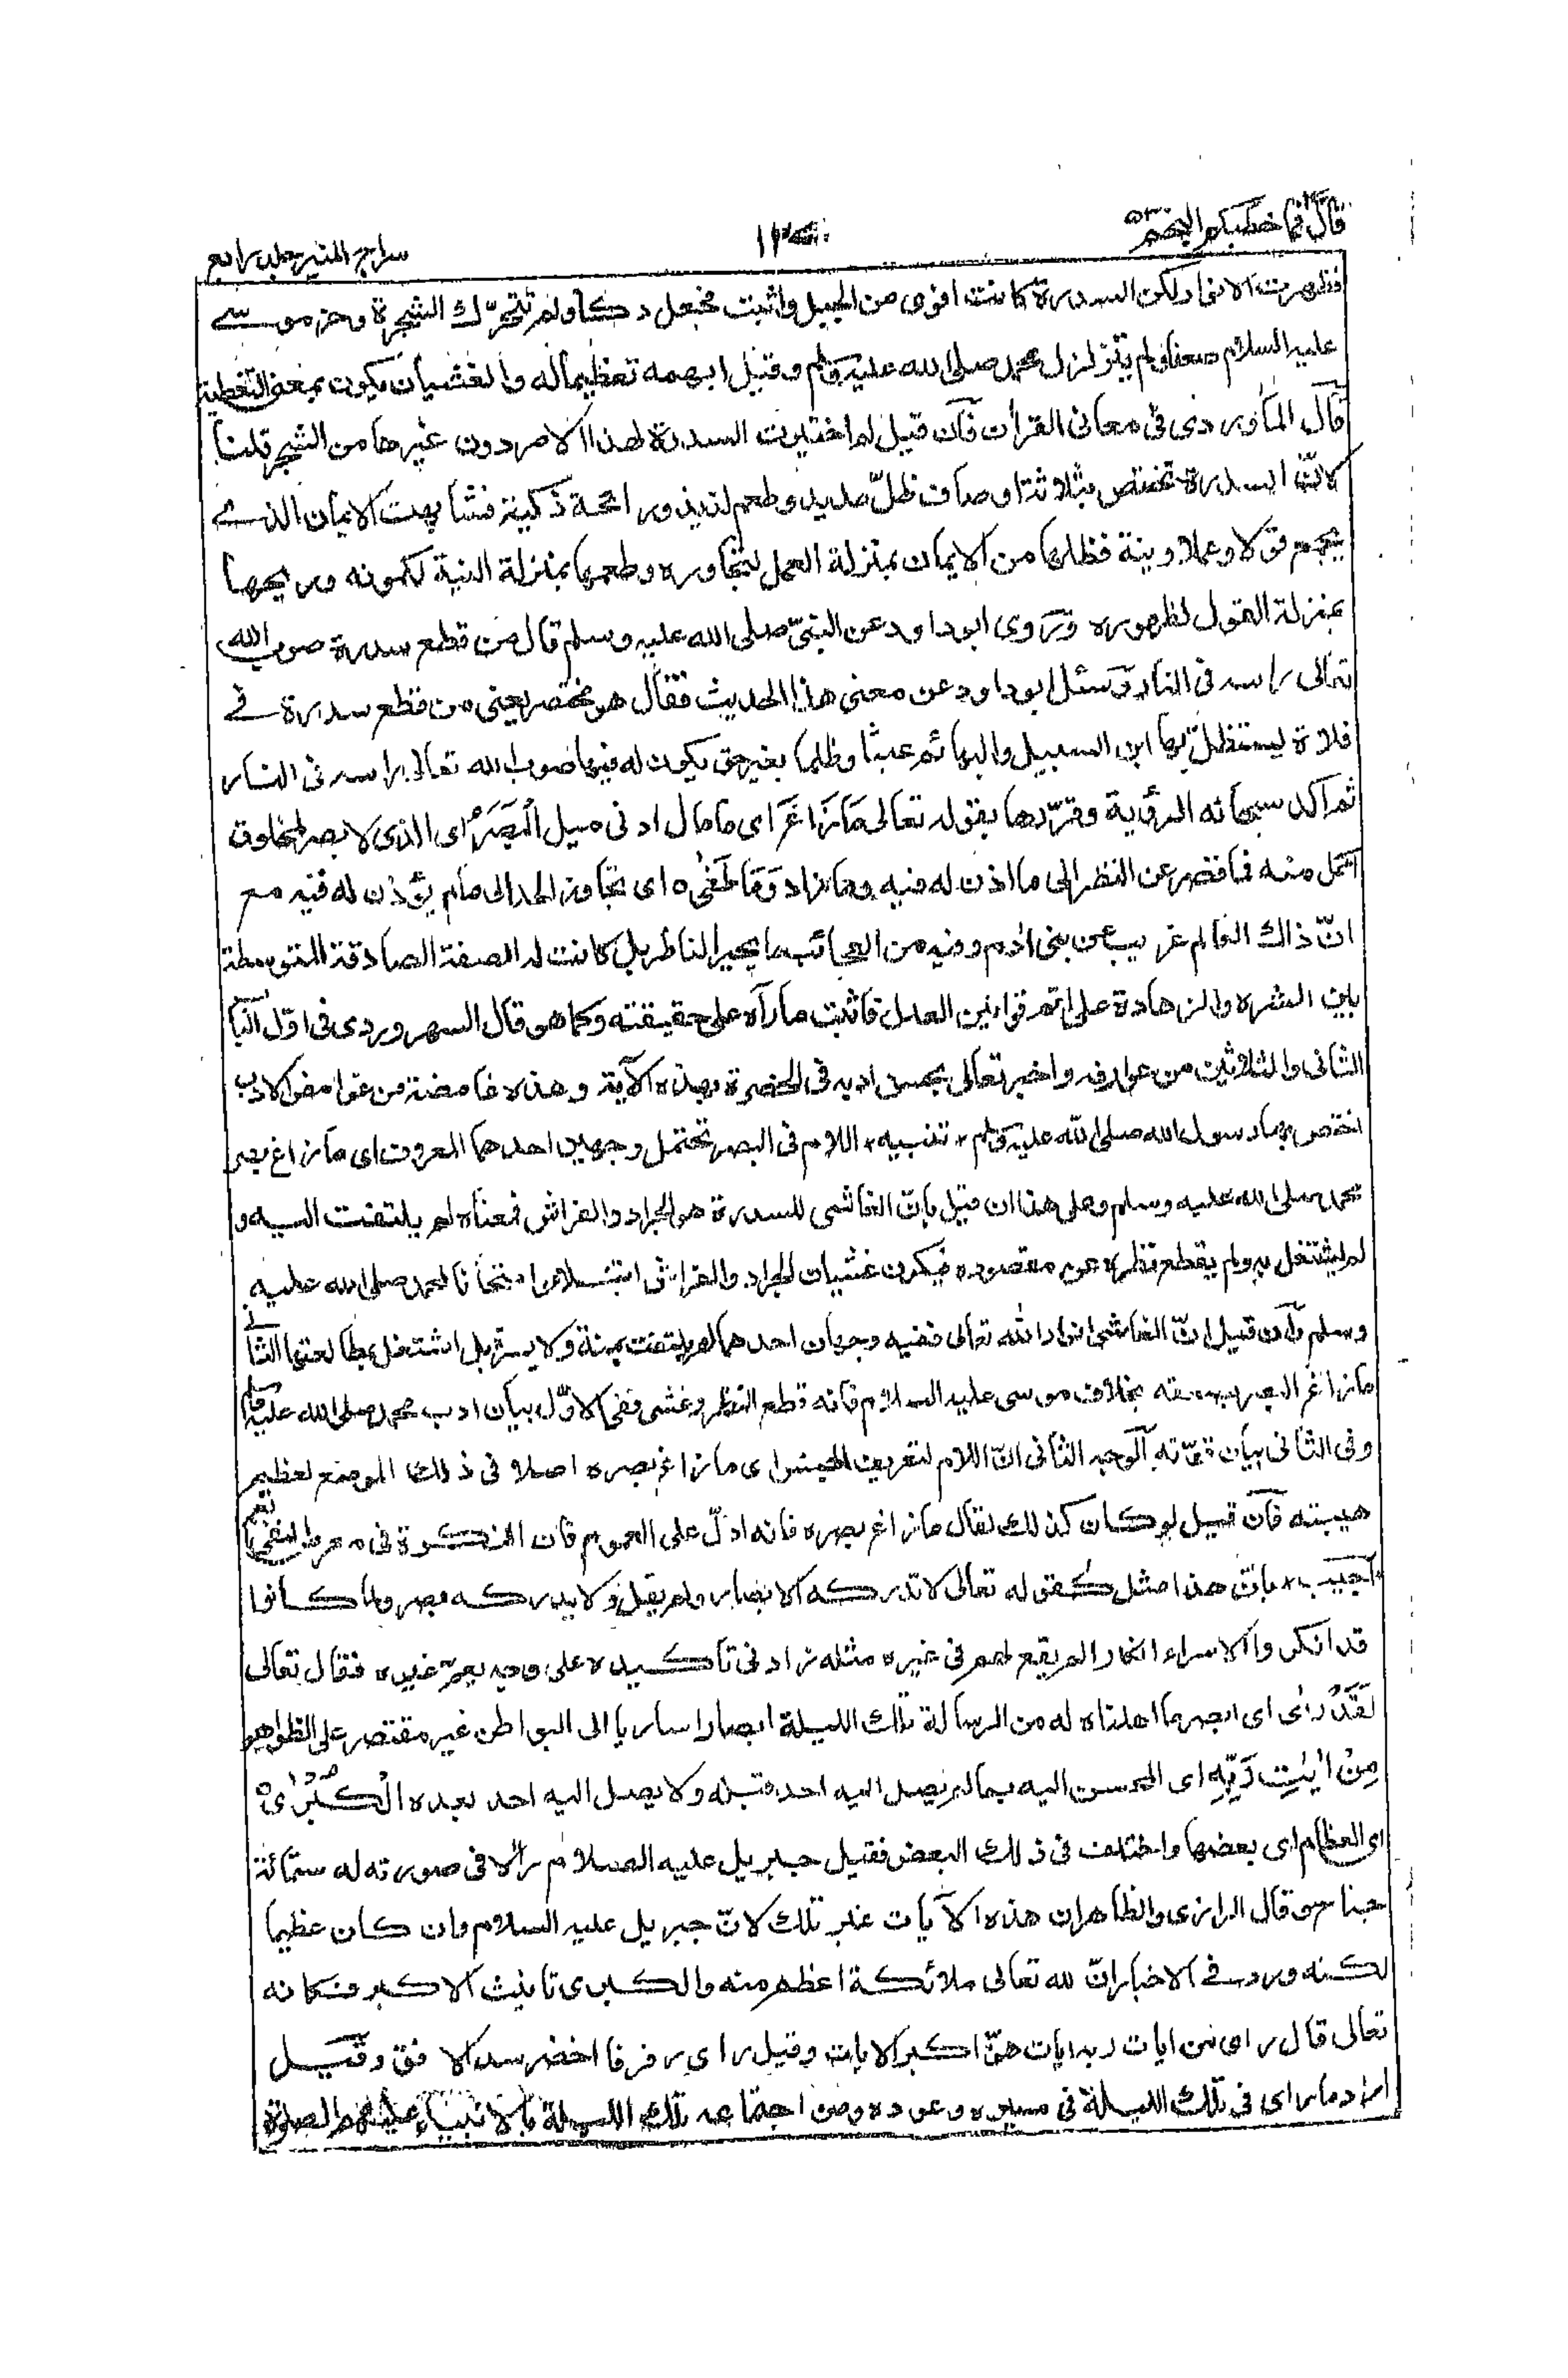 قال فما خطبكم النجم ٥٣
١٢٣
سراج المنير جلد رابع
فظهرت الانوار لكن السدرة كانت اقوى من الجبل واثبت فجعل دكا ولم تتحرّك الشجرة وخر موسے
عليه السلام صعقا ولم يتزلزل محمد صلى الله عليه وسلم وقيل ابهمه تعظيما له والغشيان يكون بمعنى التغطية
قال الماوردى فى معانى القرآن فان قيل لم اختيرت السدرة لهذا الامر دون غيرها من الشجر قلنا
لانّ السدرة تختص بثلاثة اوصاف ظلّ مديد وطعم لذيذ ورائحة ذكية فشابهت الايمان الذے
يجمع قولا وعملا ونية فظلها من الايمان بمنزلة العمل لتجاوزه وطعمها بمنزلة النية لكمونه وريحها
بمنزلة القول لظهوره وروى ابوداود عن النبىّ صلى الله عليه وسلم قال من قطع سدرة صوب الله
تعالى راسه فى النار وسئل ابوداود عن معنى هذا الحديث فقال هو مختصر يعنى من قطع سدرة فے
فلاة يستظلّ بها ابن السبيل والبهائم عبثا وظلما بغير حق يكون له فيها صوب الله تعالى راسه فى النار
ثم اكد سبحانه الرؤية وقرّرها بقوله تعالى مَا زَاغَ اى ما مال ادنى ميل الْبَصَرُ اى الذى لا بصر لمخلوق
اكمل منه فما قصر عن النظر الى ما اذن له فيه وما زاد وَمَا طَغٰى ه اى تجاوز الحد الى ما لم يؤذن له فيه مع
انّ ذلك العالم غريب عن بنى ادم وفيه من العجائب ما يحير الناظر بل كانت له الصفة الصادقة المتوسطة
بين الشره والزهادة على اتم قوانين العدل فاثبت ما رآه على حقيقته وكما هو قال السهروردى فى اوّل الباب
الثانى والثلاثين من عوارفه واخبر تعالى بحسن ادبه فى الحضرة بهذه الآية وهذه غامضة من غوامض الادب
اختص بها رسول الله صلى الله عليه وسلم * تنبيه * اللام فى البصر تحتمل وجهين احدهما المعروف اى ما زاغ بصر
محمد صلى الله عليه وسلم وعلى هذا ان قيل بانّ الغاشى للسدرة هو الجراد والفراش فمعناه لم يلتفت اليه و
لم يشتغل به ولم يقطع نظره عن مقصوده فيكون غشيان الجراد والفراش ابتلاء وامتحانا لمحمد صلى الله عليه
وسلم وان قيل انّ الغاشى انوار الله تعالى ففيه وجهان احدهما لم يلتفت يمنة ولا يسرة بل اشتغل بمطالعتها الثانى
ما زاغ البصر بصعقه بخلاف موسى عليه السلام فانه قطع النظر وغشى ففى الاوّل بيان ادب محمد صلى الله عليه وسلم
وفى الثانى بيان قوّته الوجه الثانى انّ اللام لتعريف الجنس اى ما زاغ بصره اصلا فى ذلك الموضع لعظيم
هيبته فان قيل لو كان كذلك لقال ما زاغ بصره فانه ادلّ على العموم فان النكرة فى معرض النفى تعم
اجيب * بانّ هذا مثل كقوله تعالى لا تدركه الابصار ولم يقل ولا يدركه بصر ولما كانوا
قد انكروا الاسراء انكارا لم يقع لهم فى غيره مثله زاد فى تاكيده على وجه يعمّ غيره فقال تعالى
لَقَدْ رَاٰى اى ابصر ما اهلناه له من الرسالة تلك الليلة ابصارا ساريا الى البواطن غير مقتصر على الظواهر
مِنْ اٰيٰتِ رَبِّهِ اى المحسن اليه بما لم يصل اليه احد قبله ولا يصل اليه احد بعده الْكُبْرٰى ه
اى العظام اى بعضها واختلف فى ذلك البعض فقيل جبريل عليه السلام راه فى صورته له ستمائة
جناح وقال الرازى والظاهر ان هذه الآيات غير تلك لانّ جبريل عليه السلام وان كان عظيما
لكنه ورد فے الاخبار انّ لله تعالى ملائكة اعظم منه والكبرى تانيث الاكبر فكانه
تعالى قال راى من ايات ربه ايات هنّ اكبر الايات وقيل راى رفرفا اخضر سد الافق وقيل
اراد ما راى فى تلك الليلة فى مسيره وعوده ومن اجتماعه تلك الليلة بالانبياء عليهم الصلوة